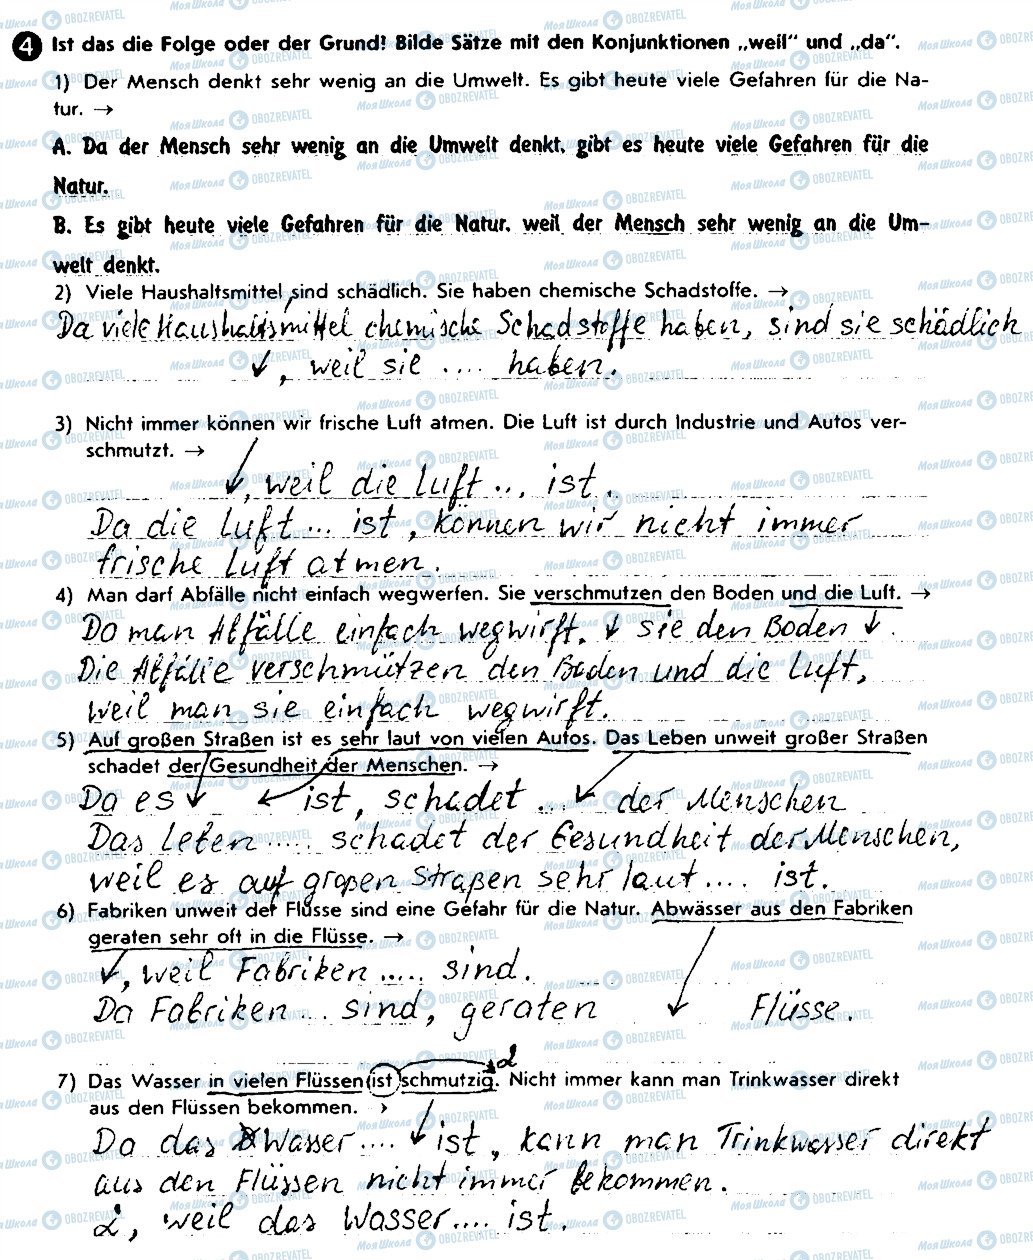 4 Ist das die Folge oder der Grund? Bilde Sätze mit den Konjunktionen „weil“ und „da“.
1) Der Mensch denkt sehr wenig an die Umwelt. Es gibt heute viele Gefahren für die Na-
tur. →
A. Da der Mensch sehr wenig an die Umwelt denkt, gibt es heute viele Gefahren für die
Natur.
B. Es gibt heute viele Gefahren für die Natur, weil der Mensch sehr wenig an die Um-
welt denkt.
2) Viele Haushaltsmittel sind schädlich. Sie haben chemische Schadstoffe. →
Da viele Haushaltsmittel chemische Schadstoffe haben, sind sie schädlich
, weil sie .... haben.
3) Nicht immer können wir frische Luft atmen. Die Luft ist durch Industrie und Autos ver-
schmutzt. →
, weil die Luft ... ist.
Da die Luft ... ist, können wir nicht immer
frische Luft atmen.
4) Man darf Abfälle nicht einfach wegwerfen. Sie verschmutzen den Boden und die Luft. →
Da man Abfälle einfach wegwirft, ↓ sie den Boden ↓.
Die Abfälle verschmützen den Boden und die Luft,
weil man sie einfach wegwirft.
5) Auf großen Straßen ist es sehr laut von vielen Autos. Das Leben unweit großer Straßen
schadet der Gesundheit der Menschen. →
Da es ist, schadet ... der Menschen
Das Leben ..... schadet der Gesundheit der Menschen,
weil es auf großen Straßen sehr laut .... ist.
6) Fabriken unweit der Flüsse sind eine Gefahr für die Natur. Abwässer aus den Fabriken
geraten sehr oft in die Flüsse. →
, weil Fabriken ..... sind.
Da Fabriken ... sind, geraten Flüsse.
7) Das Wasser in vielen Flüssen ist schmutzig. Nicht immer kann man Trinkwasser direkt
aus den Flüssen bekommen.
Da das Wasser .... ist, kann man Trinkwasser direkt
aus den Flüssen nicht immer bekommen.
2, weil das Wasser .... ist.
Моя Школа OBOZREVATEL